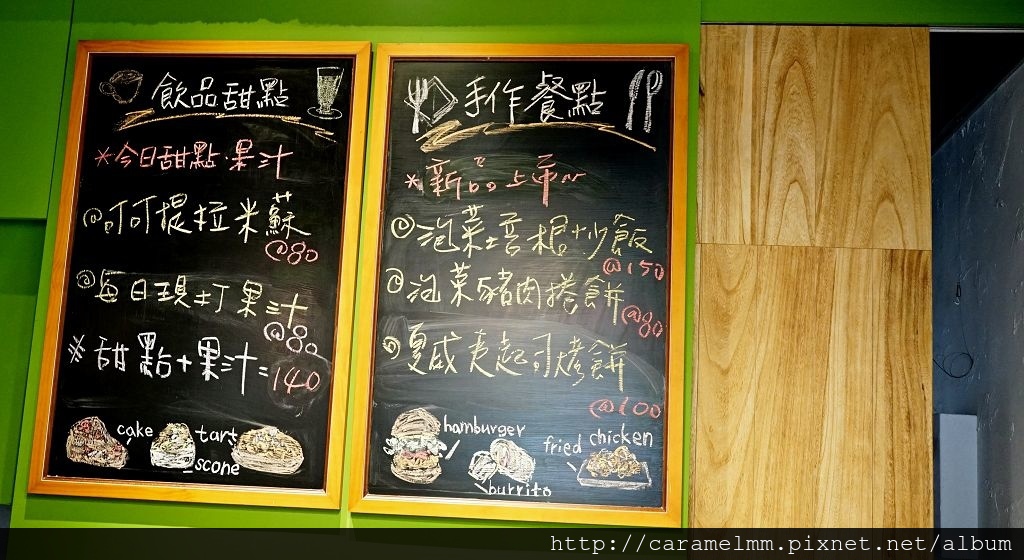 飲品甜點
*今日甜點·果汁
@可可提拉米蘇
@80
@每日現打果汁
@80
※甜點+果汁=140
cake
tart
scone
手作餐點
*新品上市~
泡菜培根炒飯
@150
泡菜豬肉捲餅
@80
夏威夷起司烤餅
@100
hamburger
burrito
fried chicken
http://caramelmm.pixnet.net/album